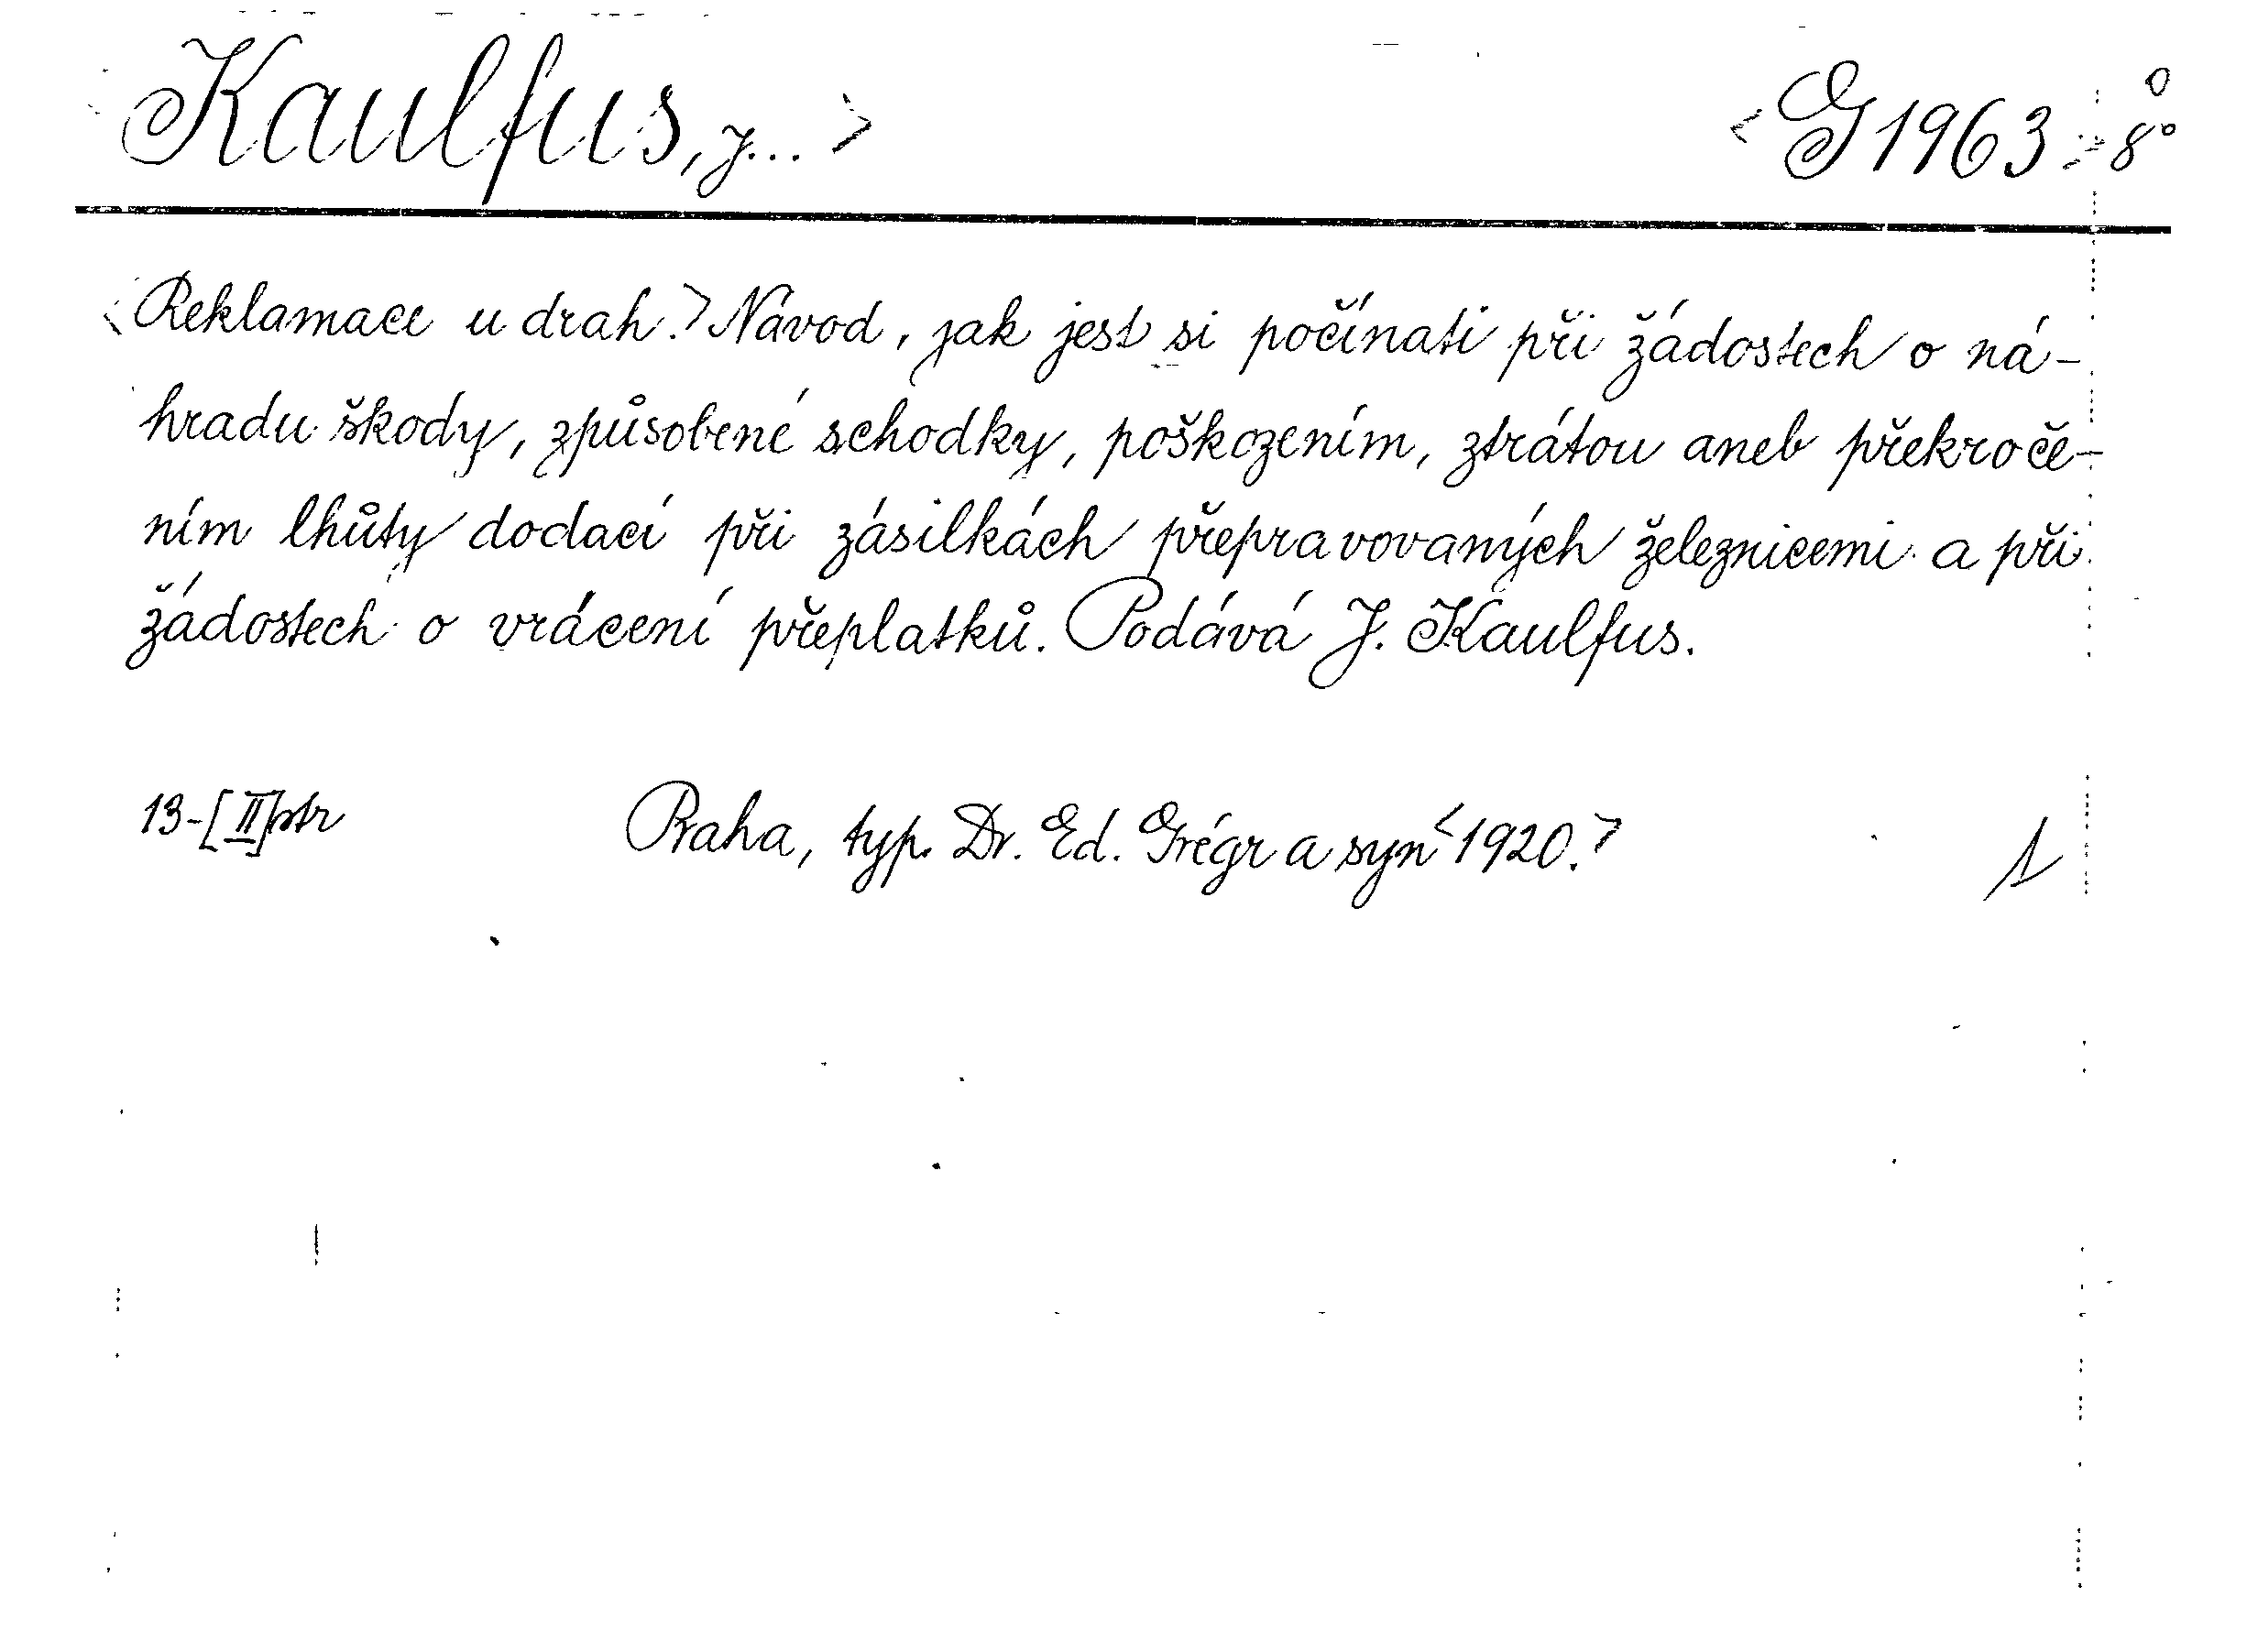 Kaulfus, J...> <G 1963> 8°
<Reklamace u drah.> Návod, jak jest si počínati při žádostech o ná-
hradu škody, způsobené schodky, poškozením, ztrátou aneb překroče-
ním lhůty dodací při zásilkách přepravovaných železnicemi a při
žádostech o vrácení přeplatků. Podává J. Kaulfus.
13-[II]str Praha, typ. Dr. Ed. Grégr a syn <1920.> 1